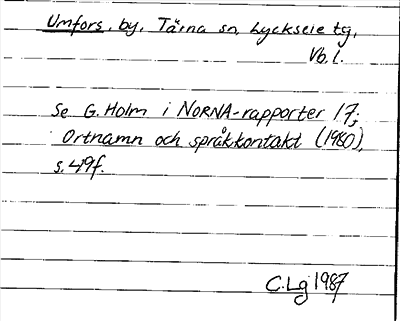 Umfors, by, Tärna sn, Lycksele tg,
Vb. l.
Se G. Holm i NORNA-rapporter 17;
Ortnamn och språkkontakt (1980),
s. 49f.
C. Lg 1987